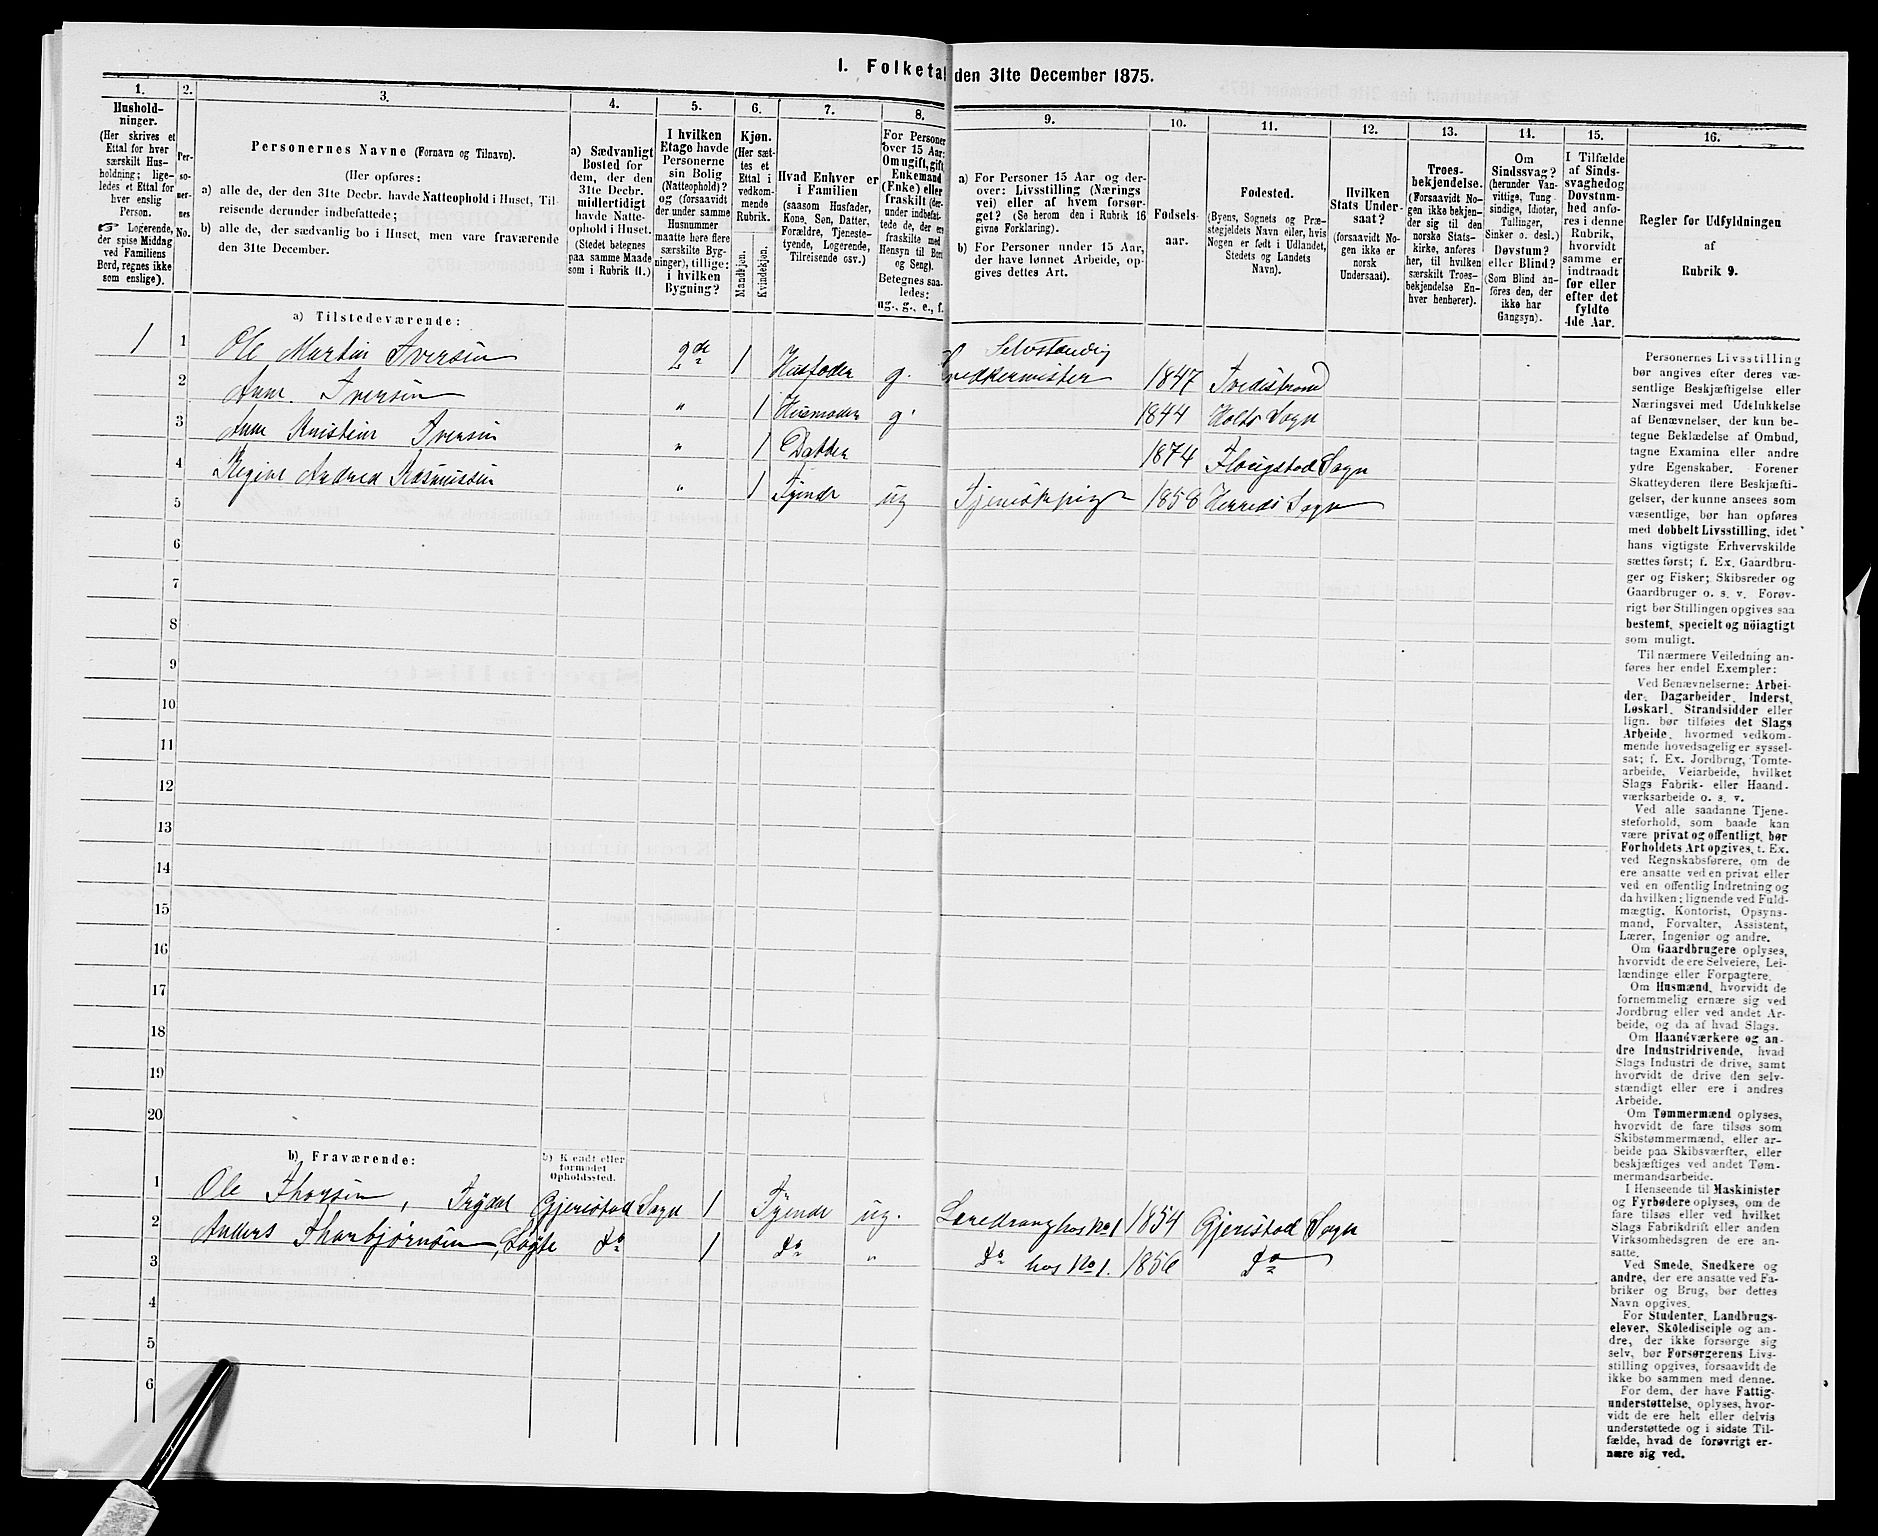 I. Folketal den 31te December 1875.
1.
Hushold-
ninger.
(Her skrives et
Ettal for hver
særskilt Hus-
holdning; lige-
ledes et Ettal for
hver enslig
Person.
☞ Logerende,
der spise Middag
ved Familiens
Bord, regnes ikke
som enslige).
2.
Per-
so-
ner-
nes
No.
3.
Personernes Navne (Fornavn og Tilnavn).
(Her opføres:
a) alle de, der den 31te Decbr. havde Natteophold i Huset, Til-
reisende derunder indbefattede;
b) alle de, der sædvanlig bo i Huset, men vare fraværende
den 31te December.
4.
a) Sædvanligt
Bosted for
dem, der den
31te Decbr.
midlertidigt
havde Natte-
ophold i Huset.
(Stedet betegnes
paa samme Maade
som i Rubrik 11.)
5.
I hvilken
Etage havde
Personerne
sin Bolig
(Natteophold)?
og (forsaavidt
der under samme
Husnummer
maatte høre flere
særskilte Byg-
ninger), tillige:
i hvilken
Bygning?
6.
Kjøn.
(Her sæt-
tes et
Ettal i
vedkom-
mende
Rubrik.
Mandkjøn.
Kvindekjøn.
7.
Hvad Enhver er
i Familien
(saasom Husfader,
Kone, Søn, Datter,
Forældre, Tjeneste-
tyende, Logerende,
Tilreisende osv.)
8.
For Personer
over 15 Aar:
Om ugift, gift,
Enkemand
(Enke) eller
fraskilt (der-
under indbefat-
tede de, der ere
fraskilte med
Hensyn til Bord
og Seng).
Betegnes saa-
ledes:
ug., g., e., f.
9.
a) For Personer 15 Aar og der-
over: Livsstilling (Nærings
vei) eller af hvem forsør-
get? (Se herom den i Rubrik 16
givne Forklaring).
b) For Personer under 15 Aar,
der have lønnet Arbeide, op-
gives dettes Art.
10.
Fødsels-
aar.
11.
Fødested.
(Byens, Sognets og Præ-
stegjeldets Navn eller, hvis
Nogen er født i Udlandet,
Stedets og Landets
Navn).
12.
Hvilken
Stats Under-
saat?
(forsaavidt No-
gen ikke er
norsk
Undersaat).
13.
Troes-
bekjendelse.
(Forsaavidt No-
gen ikke bekjen-
der sig til den
norske Stats-
kirke, anføres
her, til hvilken
særskilt Troes-
bekjendelse En-
hver henhører).
14.
Om
Sindssvag?
(herunder Van-
vittige, Tung
sindige, Idioter,
Tullinger,
Sinker o. desl.)
Døvstum?
eller Blind?
(Som Blind an-
føres den, der
ikke har
Gangsyn).
15.
I Tilfælde
af Sinds-
svaghed og
Døvstum-
hed anfø-
res i denne
Rubrik,
hvorvidt
samme er
indtraadt
før eller
efter det
fyldte
4de Aar.
16.
Regler for Udfyldningen
af
Rubrik 9.
a) Tilstedeværende:
1 1 Ole Martin Iversen 2den 1 Husfader g. Selvstændig Snedkermester 1847 Tvedestrand
2 Anne Iversen " 1 Husmoder g. 1844 Holts Sogn
3 Anne Kristine Iversen " 1 Datter 1874 Sogn
4 Regine Andrea Rasmussen " 1 Tyende ug Tjenestepige 1858 Herreds Sogn
5
6
7
8
9
10
11
12
13
14
15
16
17
18
19
20
b) Fraværende:
b) Kjendt eller
formodet
Opholdssted.
1 Ole Thorsen, Trydal Gjerestad Sogn 1 Tyende ug. Læredreng hos No 1 1854 Gjerestad Sogn
2 Anders Thorbjørnsen, Løite Do 1 Do " Do hos No 1. 1856 Do
3
4
5
6
Personernes Livsstilling
bør angives efter deres væ-
sentlige Beskjæftigelse eller
Næringsvei med Udelukkelse
af Benævnelser, der kun be-
tegne Beklædelse af Ombud,
tagne Examina eller andre
ydre Egenskaber. Forener
Skatteyderen flere Beskjæfti-
gelser, der kunne ansees som
væsentlige, bør han opføres
med dobbelt Livsstilling, idet
hans vigtigste Erhvervskilde
sættes først; f. Ex. Gaardbru-
ger og Fisker; Skibsreder og
Gaardbruger o. s. v. Forøv-
rigt bør Stillingen opgives saa
bestemt, specielt og nöiagtigt
som muligt.
Til nærmere Veiledning an-
føres her endel Exempler:
Ved Benævnelserne: Arbei-
der, Dagarbeider, Inderst,
Løskarl, Strandsidder eller
lign. bør tilføies det Slags
Arbeide, hvormed vedkom-
mende hovedsagelig er syssel-
sat; f. Ex. Jordbrug, Tomte-
arbeide, Veiarbeide, hvilket
Slags Fabrik- eller Haand-
værksarbeide o. s. v.
Ved alle saadanne Tjene-
steforhold, som baade kan
være privat og offentligt, bør
Forholdets Art opgives, t. Ex.
ved Regnskabsførere, om de
ere ansatte ved en privat eller
ved en offentlig Indretning og
da hvilken; lignende ved Fuld-
mægtig, Kontorist, Opsyns-
mand, Forvalter, Assistent,
Lærer, Ingeniør og andre.
Om Gaardbrugere oplyses,
hvorvidt de ere Selveiere, Lei-
lændinge eller Forpagtere.
Om Husmænd, hvorvidt de
fornemmelig ernære sig ved
Jordbrug eller ved andet Ar-
beide, og da af hvad Slags.
Om Haandværkere og an-
dre Industridrivende, hvad
Slags Industri de drive, samt
hvorvidt de drive den selv-
stændigt eller ere i andres
Arbeide.
Om Tømmermænd oplyses,
hvorvidt de fare tilsøs som
Skibstømmermænd, eller ar-
beide paa Skibsværfter, eller
beskjæftiges ved andet Tøm-
mermandsarbeide.
I Henseende til Maskinister
og Fyrbødere oplyses, om de
fare tilsøs eller ved hvilket
Slags Fabrikdrift eller anden
Virksomhedsgren de ere an-
satte.
Ved Smede, Snedkere og
andre, der ere ansatte ved Fa-
briker og Brug, bør dettes
Navn opgives.
For Studenter, Landbrugs-
elever, Skoledisciple og an-
dre, der ikke forsørge sig
selv, bør Forsørgerens Livs-
stilling opgives, forsaavidt de
ikke bo sammen med denne.
For dem, der have Fattig-
understøttelse, oplyses, hvor-
vidt de ere helt eller delvis
understøttede og i sidste Til-
fælde, hvad de forøvrigt er-
nære sig ved.